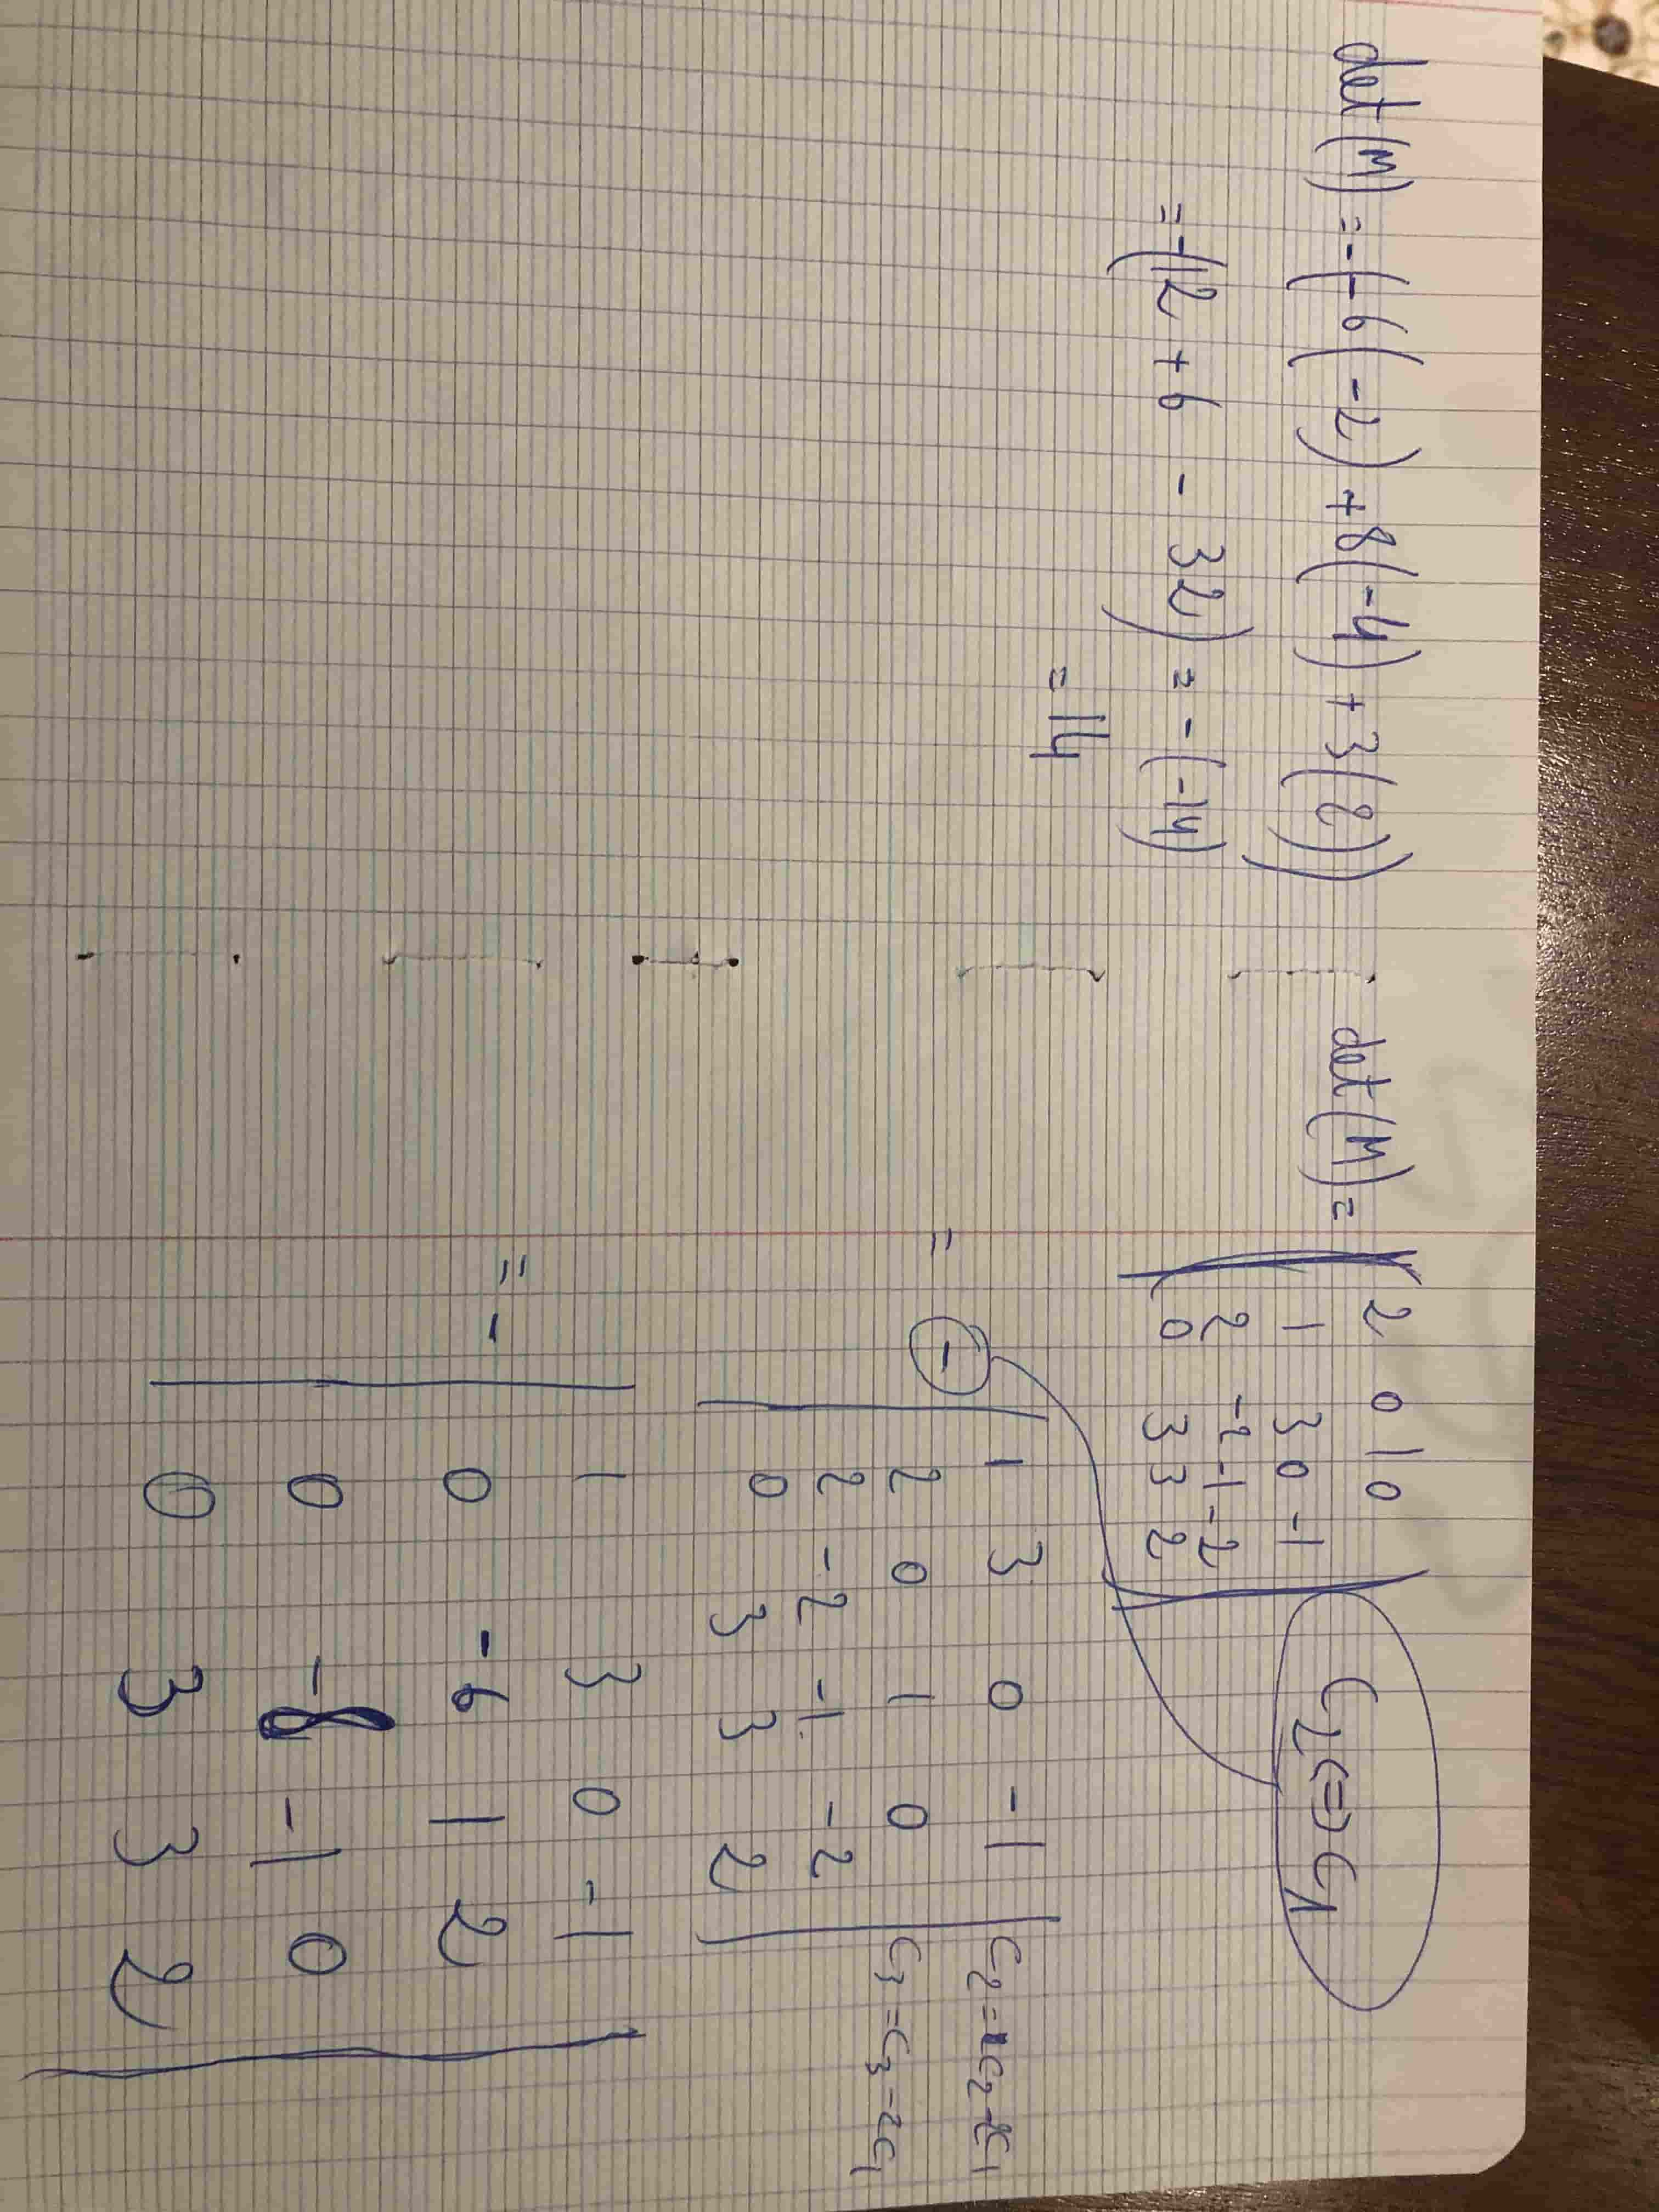 det(M) = -(-6(-2) + 8(-4) + 3(2))
= -(12 + 6 - 32) = -(-14)
= 14
det(M) =
2 0 1 0
1 3 0 -1
2 -2 -1 -2
0 3 3 2
C2 <=> C1
= -
1 3 0 -1
2 0 1 0
2 -2 -1 -2
0 3 3 2
C2 = C2 - 2C1
C3 = C3 - 2C1
= -
1 3 0 -1
0 -6 1 2
0 -8 -1 0
0 3 3 2